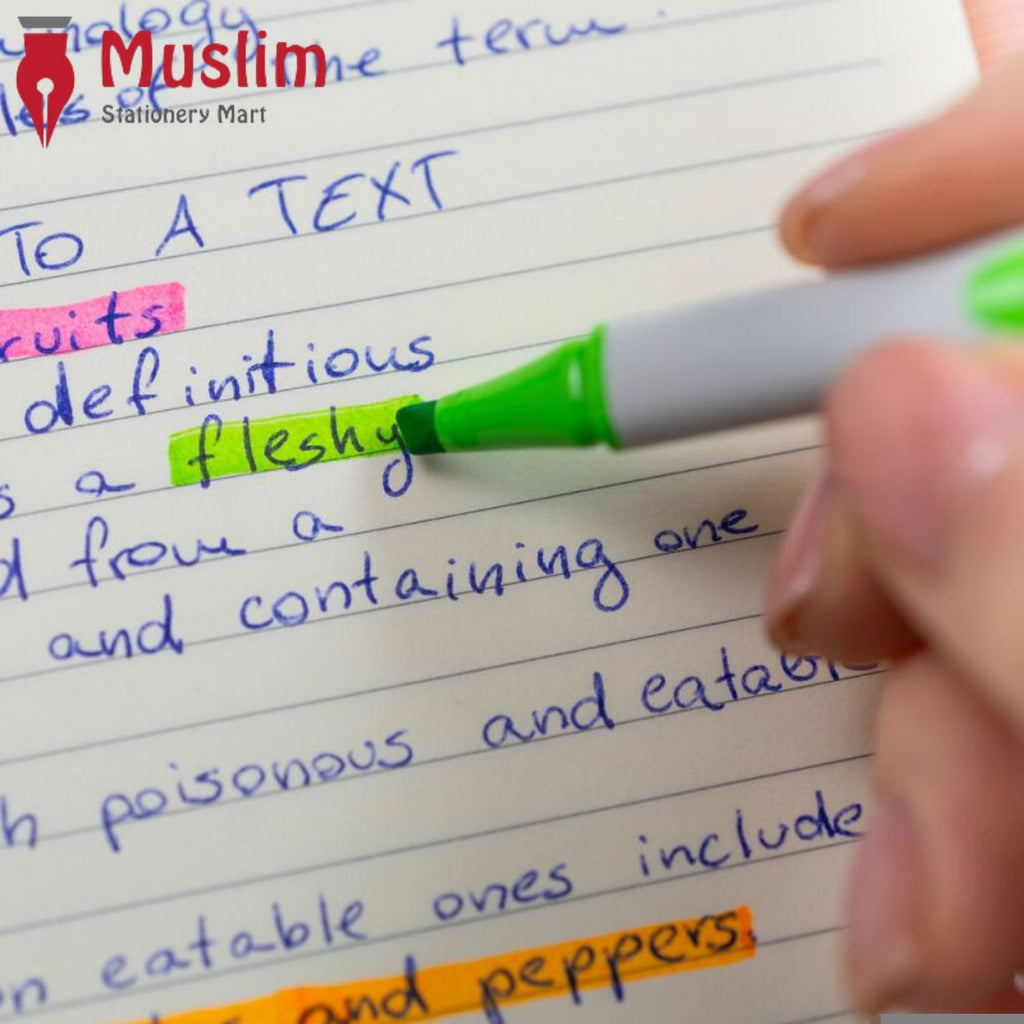 Muslim
Stationery Mart
the term
of
TO A TEXT
ruits
definitious
a fleshy
from a
and containing one
poisonous and eatable
eatable ones include
and peppers.